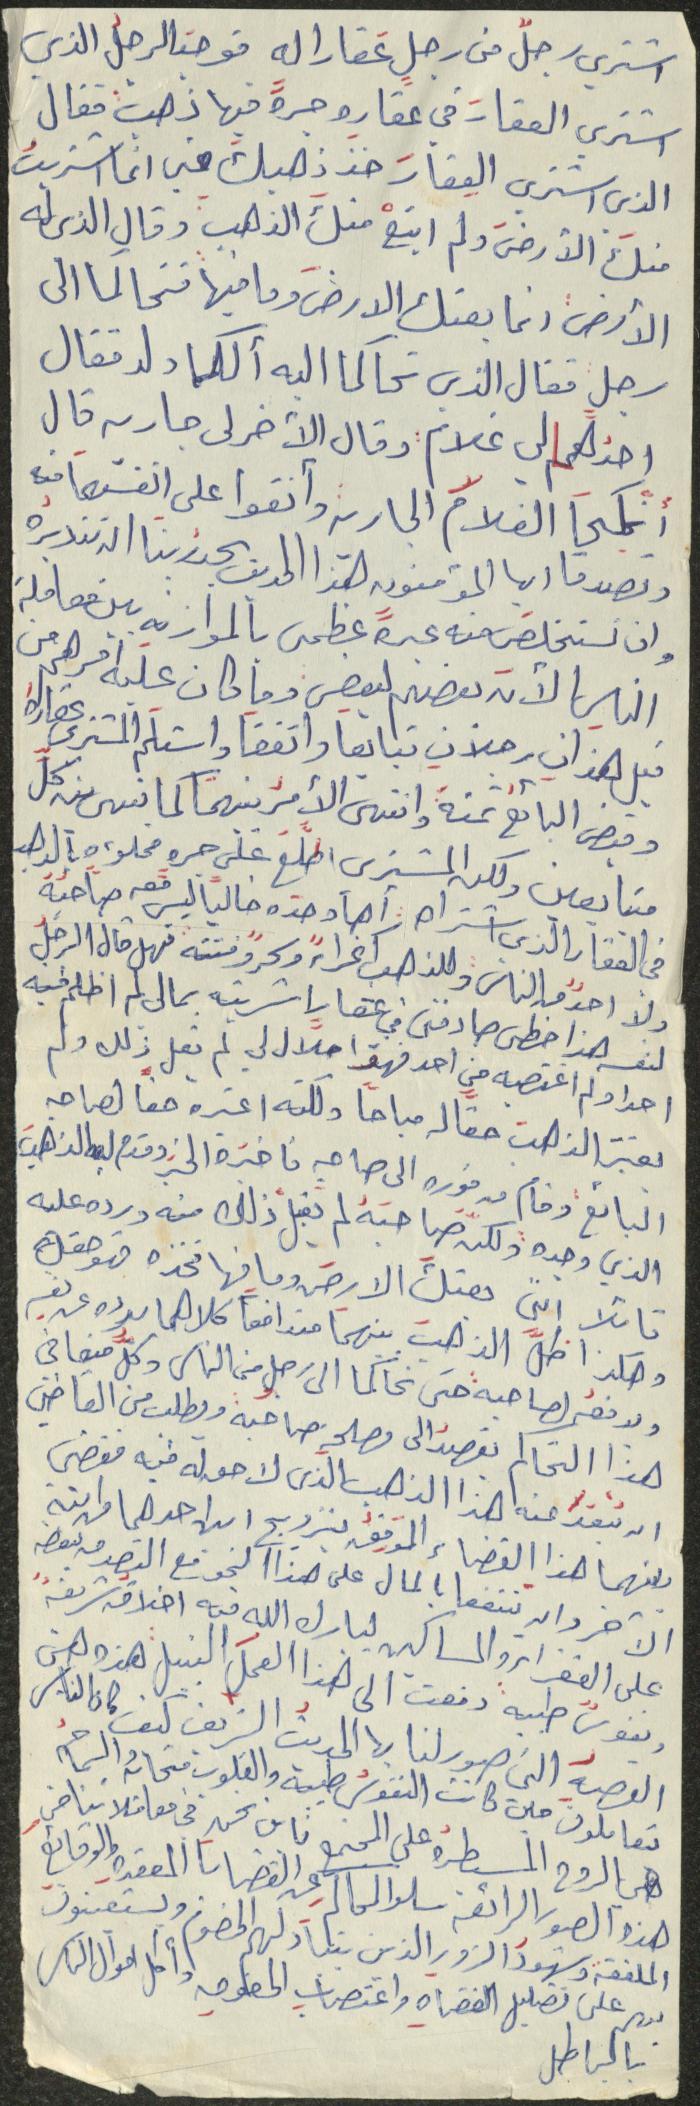 اشترى رجلٌ من رجلٍ عقارا له فوجد الرجلُ الذي
اشترى العقارَ في عقاره جرةً فيها ذهبٌ فقال
الذي اشترى العقارَ خذ ذهبكَ مني انما اشتريتُ
منكَ الأرضَ ولم ابتعْ منكَ الذهبَ وقال الذي له
الأرضُ انما بعتك الارضَ وما فيها فتحاكما الى
رجلٍ فقال الذي تحاكما اليه ألكما ولد فقال
احدُهما لي غلامٌ وقال الأخر لى جاريه قال
أنكحا الغلامَ الجاريهَ وأنفقوا على انفسهما منه
وتصدقا ايها المؤمنون هذا الحديث يجدر بنا ان نتدبرهُ
وان نستخلصَ منه عبرةً عظمى بالموازنه بين معاملة
الناس الأن بعضهم لبعض وما كان عليه امرهم من
قبل هذان رجلان تبايعا واتفقا واستلم المشترى عقارهُ
وقبض البائعُ ثمنهُ وانتهى الأمرُ بينهما كما ينتهى بين كلّ
متبايعين ولكن المشترى اطّلعَ على جره مملوءه بالذهب
فى العقار الذي اشتراه رأها وحده خالياً ليس معه صاحبُهُ
ولا احدٌ من الناس وللذهب اغراءٌ وسحرٌ وفتنته فهل قال الرجلُ
لنفسه هذا حظى صادفنى في عقار اشتريته بمالى لم اظلم فيه
احدا ولم اغتصبه من احد فهو حلال لي لم يقل ذلك ولم
يعتبر الذهبَ حقاً له مباحاً ولكنه اعتبره حقاً لصاحبه
البائع وقام من فوره الى صاحبه فاخبره الخبرَ وقدم له الذهبَ
الذي وجده ولكن صاحبَهُ لم يقبلْ ذلك منه ورده عليه
قائلا اننى بعتكَ الارضَ وما فيها فخذه فهو حقك
وهكذا ظلّ الذهبُ بينهما متدافعاً كلاهما يرده عن نفسه
ويدفعه لصاحبه حتى تحاكما الى رجل من الناس وكلٌ منهما فى
هذا التحاكم يقصدُ الى مصلحة صاحبه ويطلب من القاضي
ان يُبعدَ عنه هذا الذهب الذى لا حق له فيه فقضى
بينهما هذا القضاءَ الموفقَ بتزويج ابن احدهما من ابنة
الآخر وان ينتفعا بالمال على هذا النحو مع التصدق ببعضه
على الفقراء والمساكين ليبارك الله فيه اخلاقٌ شريفةٌ
ونفوسٌ طيبه دفعت الى هذا العمل النبيل هذه هى
القصة التى صور لنا بها الحديث الشريف كيف كان الناس
يتعاملون حين كانت النفوسُ طيبة والقلوب متحابه والسماحهُ
هى الروح المسيطره على المجتمع فأين نحن فى معاملاتنا من
هذه الصور الرائعه سلوا المحاكم عن القضايا المعقده والوقائع
الملفقه وشهود الزور الذين يتبادلهم الخصوم ويستعينون
بهم على تضليل القضاه واغتصاب الحقوق وأكل اموال الناس
بالباطل